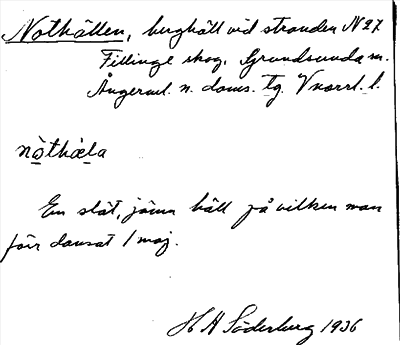 Nothällen, berghäll vid stranden N 27
Fillinge skog, Grundsunda sn.
Ångerml. n. doms. tg. Vnorrl. l.
nòthæla
En slät, jämn häll på vilken man
förr dansat 1 maj.
H A Söderberg 1936